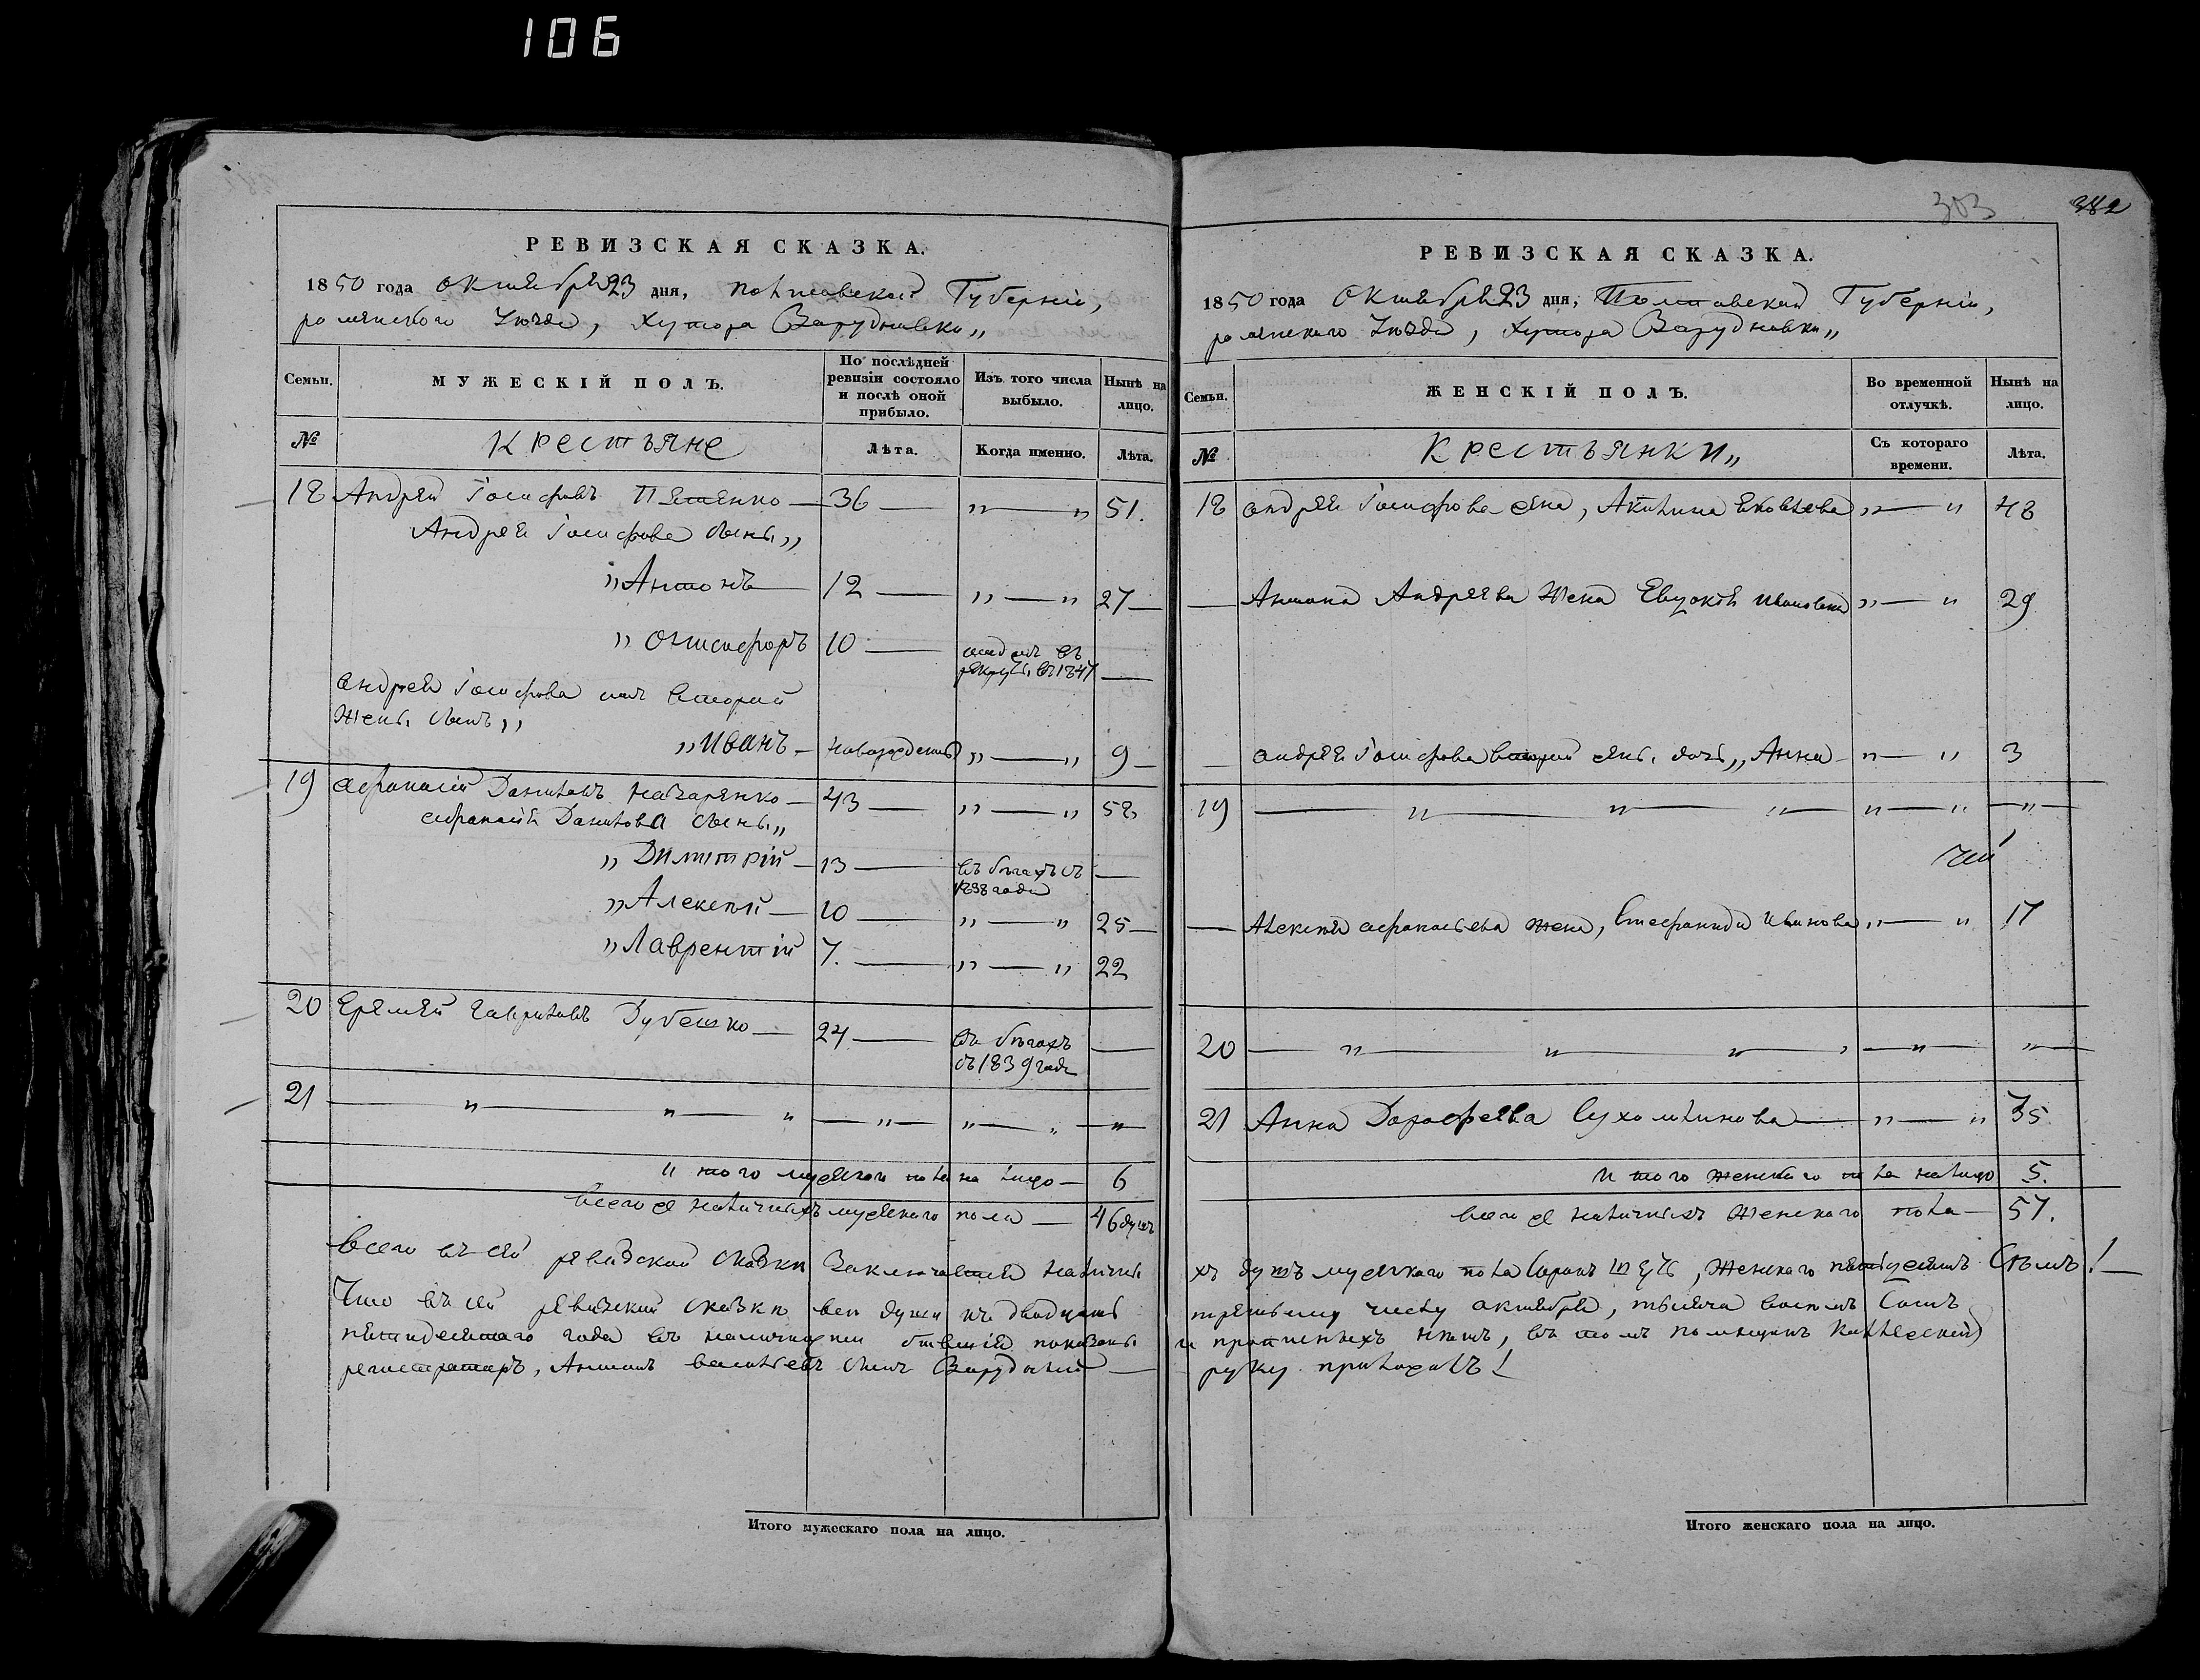 106
303
382
РЕВИЗСКАЯ СКАЗКА.
1850 года октября 23 дня, Полтавской Губерніи,
роменского уѣзда, хутора Зарудновки„
Семьи.
МУЖЕСКІЙ ПОЛЪ.
По послѣдней ревизіи состояло и послѣ оной прибыло.
Изъ того числа выбыло.
Нынѣ на лицо.
№
Крестьяне
Лѣта.
Когда именно.
Лѣта.
18 Андрей Іосифовъ — 36 — „ — „ 51.
Андрея Іосифова сыны„
„Антонъ — 12 — „ — „ 27 —
„Онисифоръ 10 — отданъ въ рекруты въ 1847 —
Андрея Іосифова отъ второй
жены сынъ„
„Иванъ — новорожденный „ — „ 9 —
19 Афанасій Даниловъ Назаренко — 43 — „ — „ 58
Афанасія Данилова сыны„
„Димитрій — 13 — въ бѣгахъ съ 1838 года —
„Алексѣй — 10 — „ — „ 25 —
„Лаврентій 7. — „ — „ 22
20 Еремѣй Гавриловъ — 24 — въ бѣгахъ съ 1839 года —
21 — „ — „ — „ — „ — „ — „ — „ —
итого мужеского пола на лицо — 6
всего наличныхъ мужеского пола — 46 душъ
Всего въ сей ревизской сказки заключается наличны
Что въ сей ревизской сказки все души къ двадцать
пятидесятаго года въ наличности бывшія показаны
регистраторъ, Антонъ Васильевъ сынъ Зарудный —
Итого мужескаго пола на лицо.
РЕВИЗСКАЯ СКАЗКА.
1850 года Октября 23 дня, Полтавской Губерніи,
роменского уѣзда, хутора Зарудновки„
Семьи.
ЖЕНСКІЙ ПОЛЪ.
Во временной отлучкѣ.
Нынѣ на лицо.
№
Крестьянки„
Съ котораго времени.
Лѣта.
18 Андрея Іосифова жена, Акилина Яковлева „ — „ 48
— Антона Андреева жена Евдокія Иванова „ — „ 29
— Андрея Іосифова второй жены дочь„ Анна — „ — „ 3
19 — „ — „ — „ „ — „ — „ —
— Алексѣя Афанасьева жена, Стефанида Иванова „ — „ 17
20 — „ — „ — „ — „ — „ —
21 Анна Дорофеева Сухомлинова — „ — „ 35
итого женского пола налицо 5.
всего наличныхъ женского пола — 57.
хъ душъ мужеского пола сорокъ шесть, женского пятьдесятъ сѣмъ! —
третьему числу октября, тысяча восемъ сотъ
и прописныхъ нѣтъ, въ томъ помещикъ Коллежскій
руку приложилъ!
Итого женскаго пола на лицо.